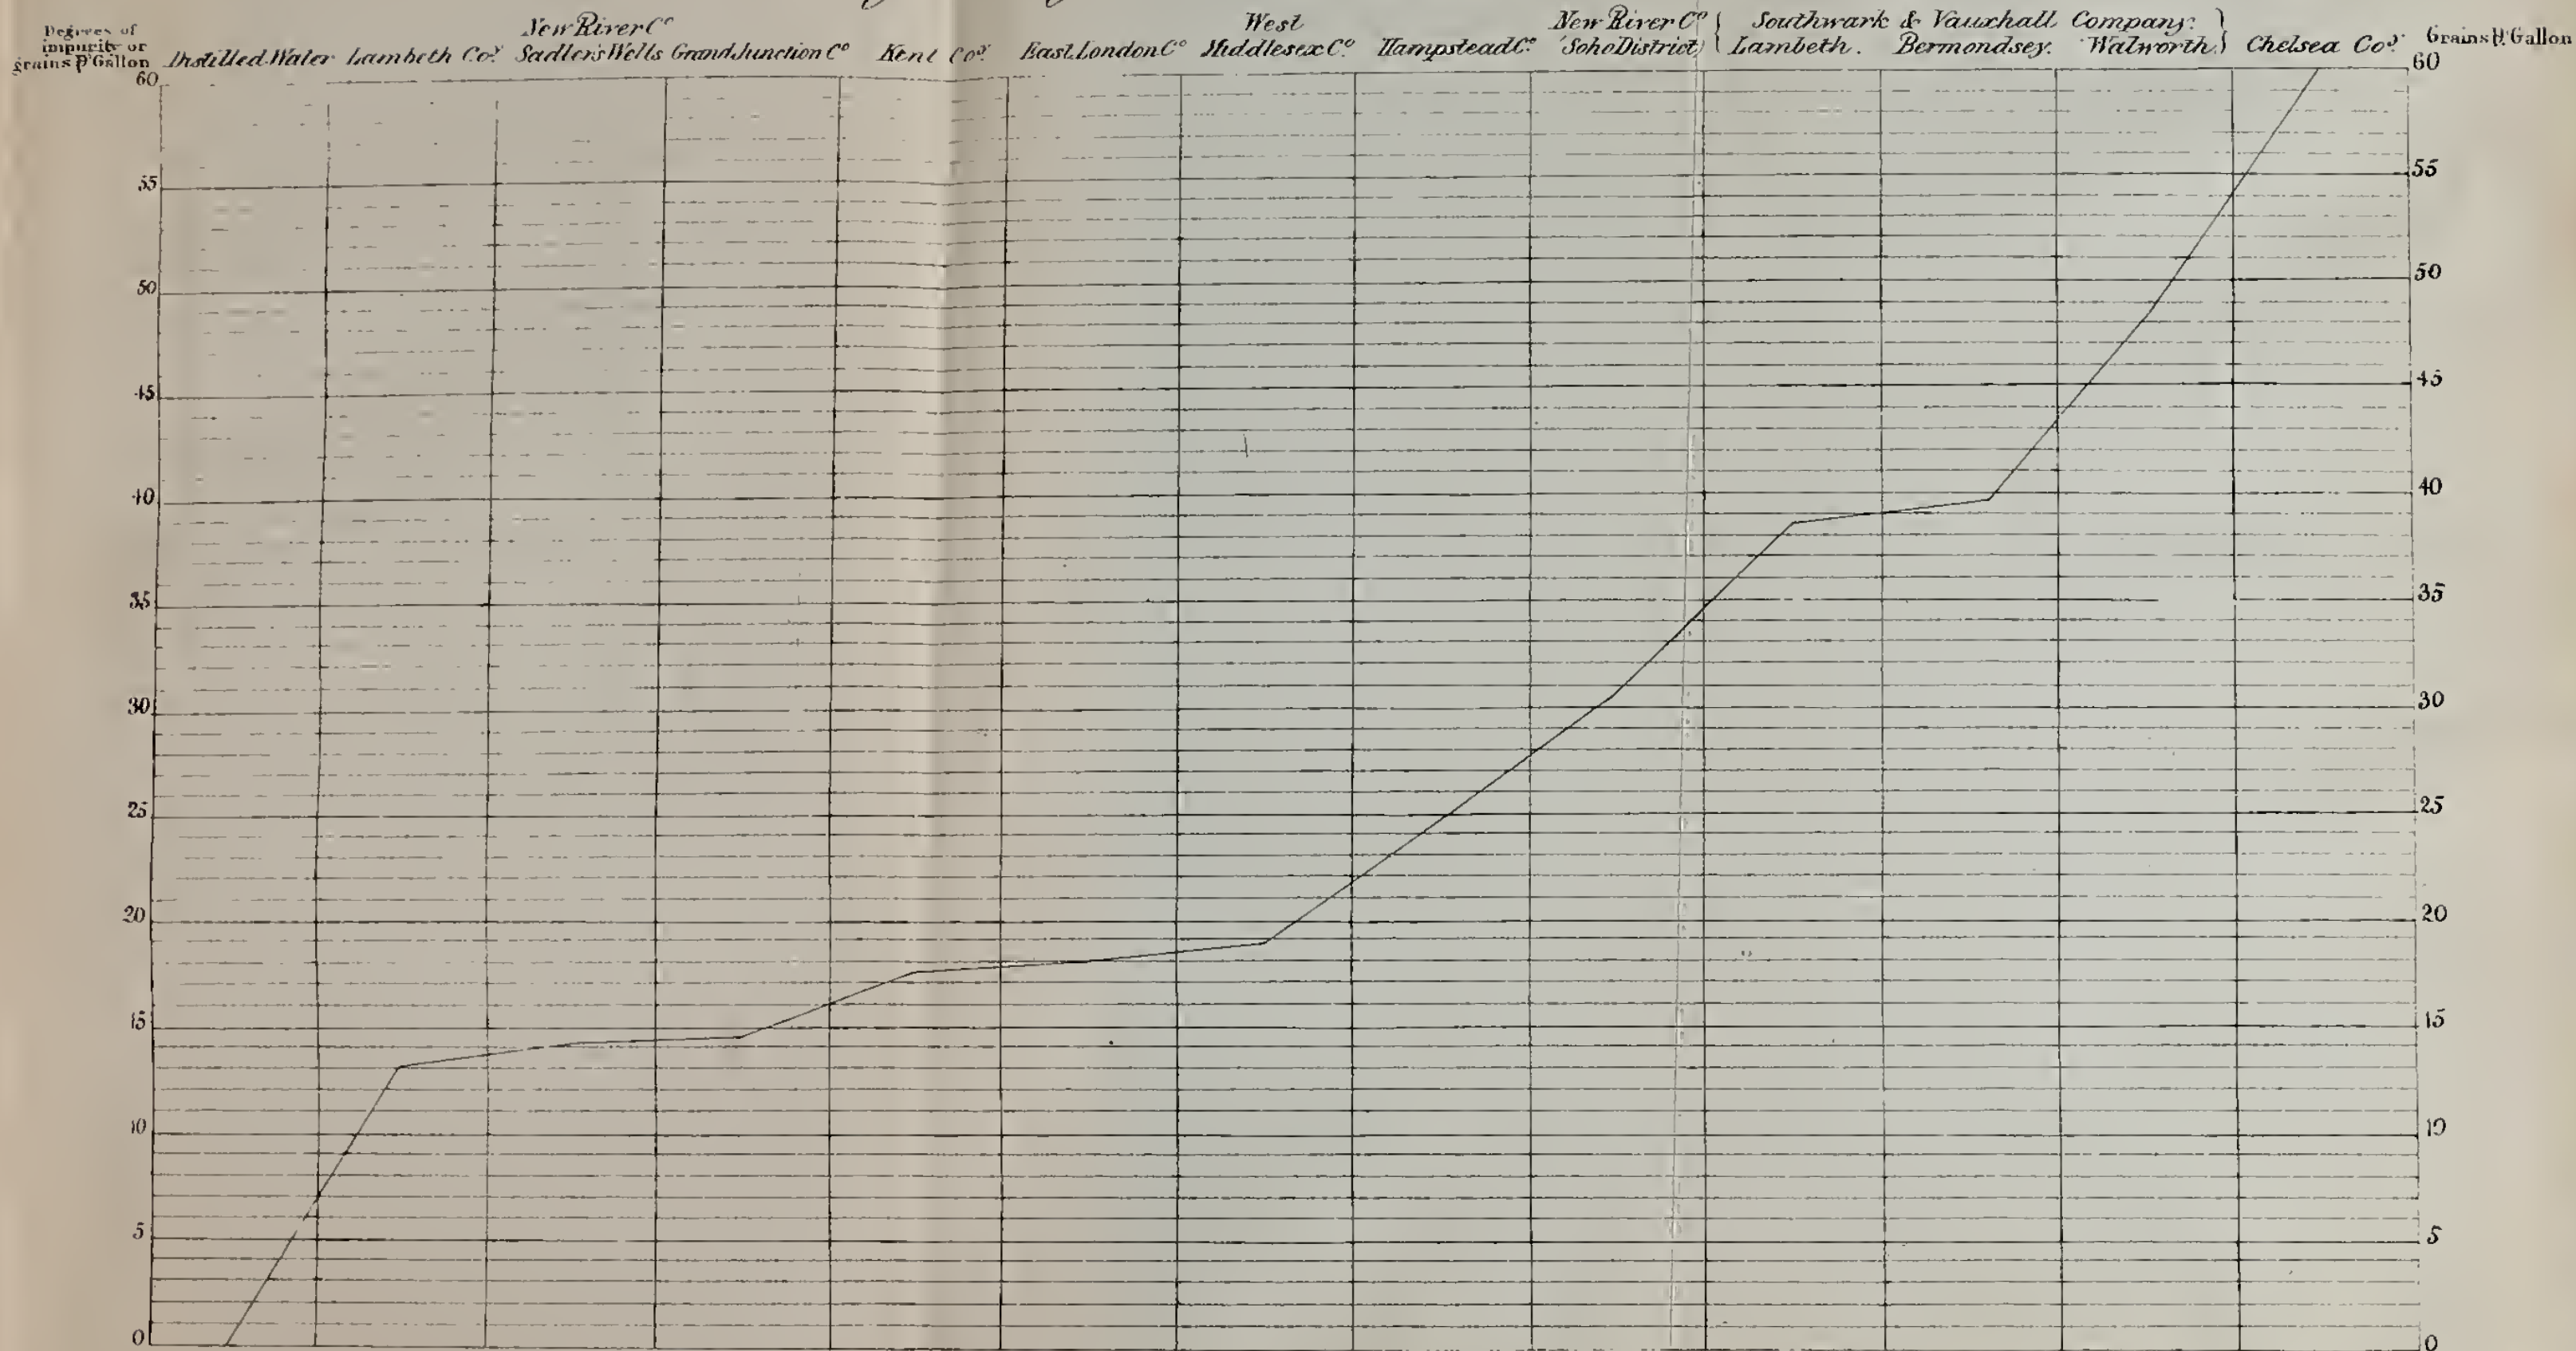 Degrees of
impurity or
grains ℔ Gallon
Distilled Water
Lambeth Coy.
New River Co
Sadler's Wells
Grand Junction Co
Kent Coy.
East London Co
West
Middlesex Co.
Hampstead Co.
New River Co
(Soho District)
{ Southwark & Vauxhall Company. }
Lambeth. Bermondsey. Walworth.
Chelsea Coy.
Grains ℔ Gallon
60 60
55 55
50 50
45 45
40 40
35 35
30 30
25 25
20 20
15 15
10 10
5 5
0 0